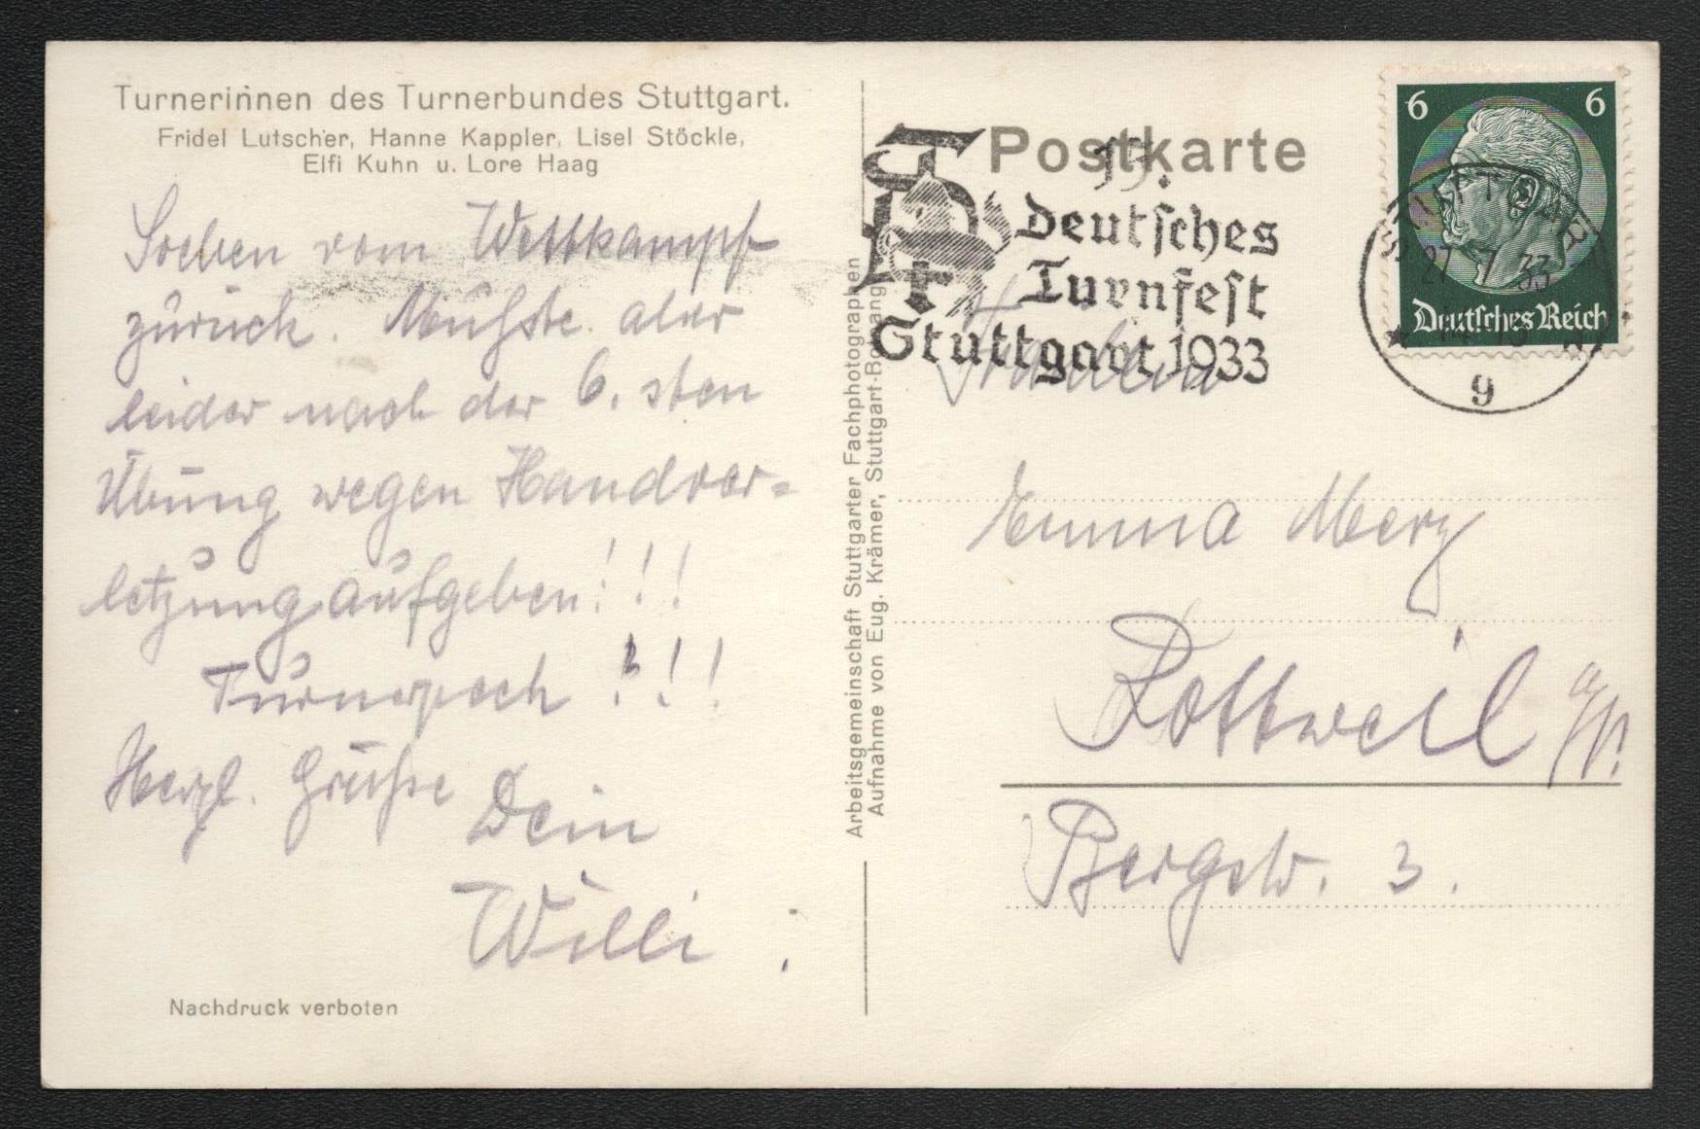 Turnerinnen des Turnerbundes Stuttgart.
Fridel Lutscher, Hanne Kappler, Lisel Stöckle,
Elfi Kuhn u. Lore Haag
Soeben vom Wettkampf
zurück. Mußte aber
leider nach der 6. sten
Übung wegen Handver-
letzung aufgeben!!!
Turnerpech!!!
Herzl. Grüße
Dein
Willi
Nachdruck verboten
Arbeitsgemeinschaft Stuttgarter Fachphotographen
Aufnahme von Eug. Krämer, Stuttgart-
Postkarte
15.
Deutsches
Turnfest
Stuttgart 1933
6 6
Deutsches Reich
STUTTGART
27.7.33
9
Fräulein
Emma Merz
Rottweil a/N.
Bergstr. 3.